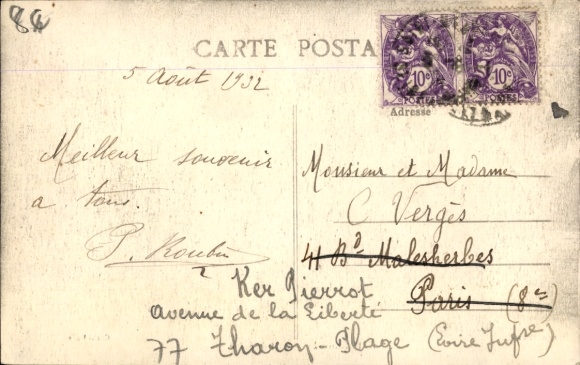 86
CARTE POSTA
10c POSTES 10c POSTES
5 Août 1932
Adresse
Meilleur souvenir
a tous.
P. Roubin
Monsieur et Madame
C Vergès
41 Bd Malesherbes
Paris (8e)
Ker Pierrot
avenue de la Liberté
77 Tharon-Plage (Loire Infre)